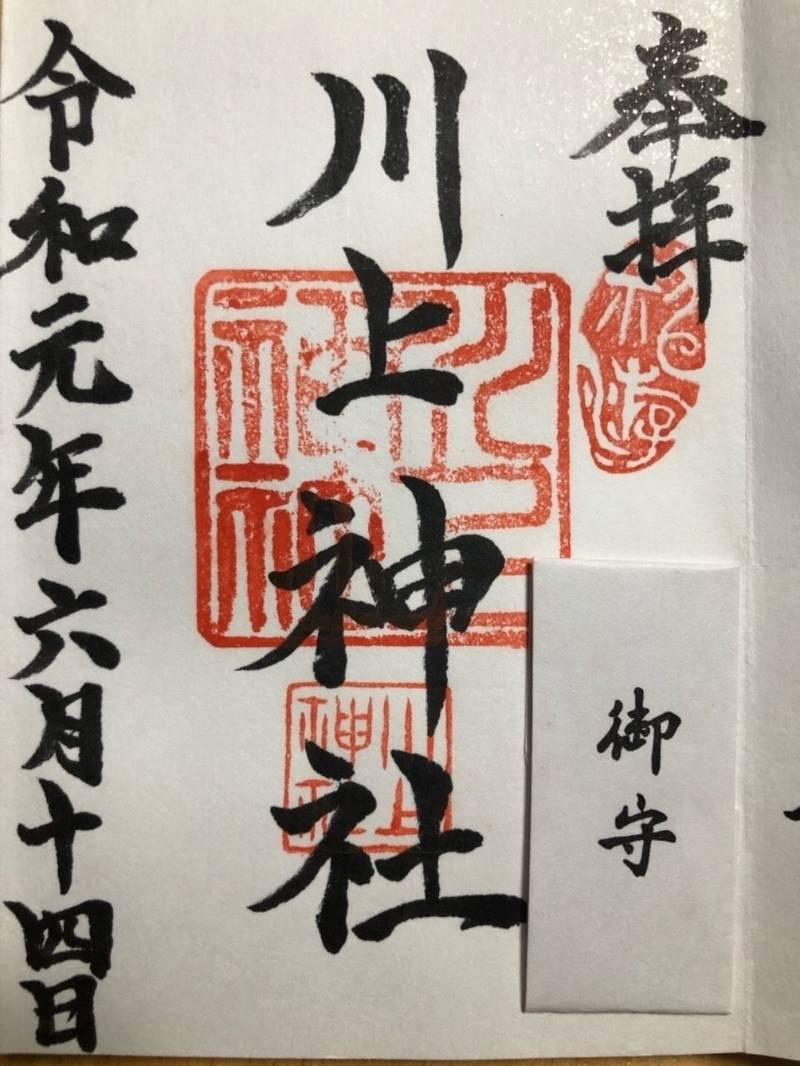 奉拝
川上神社
川上神社
令和元年六月十四日
御守